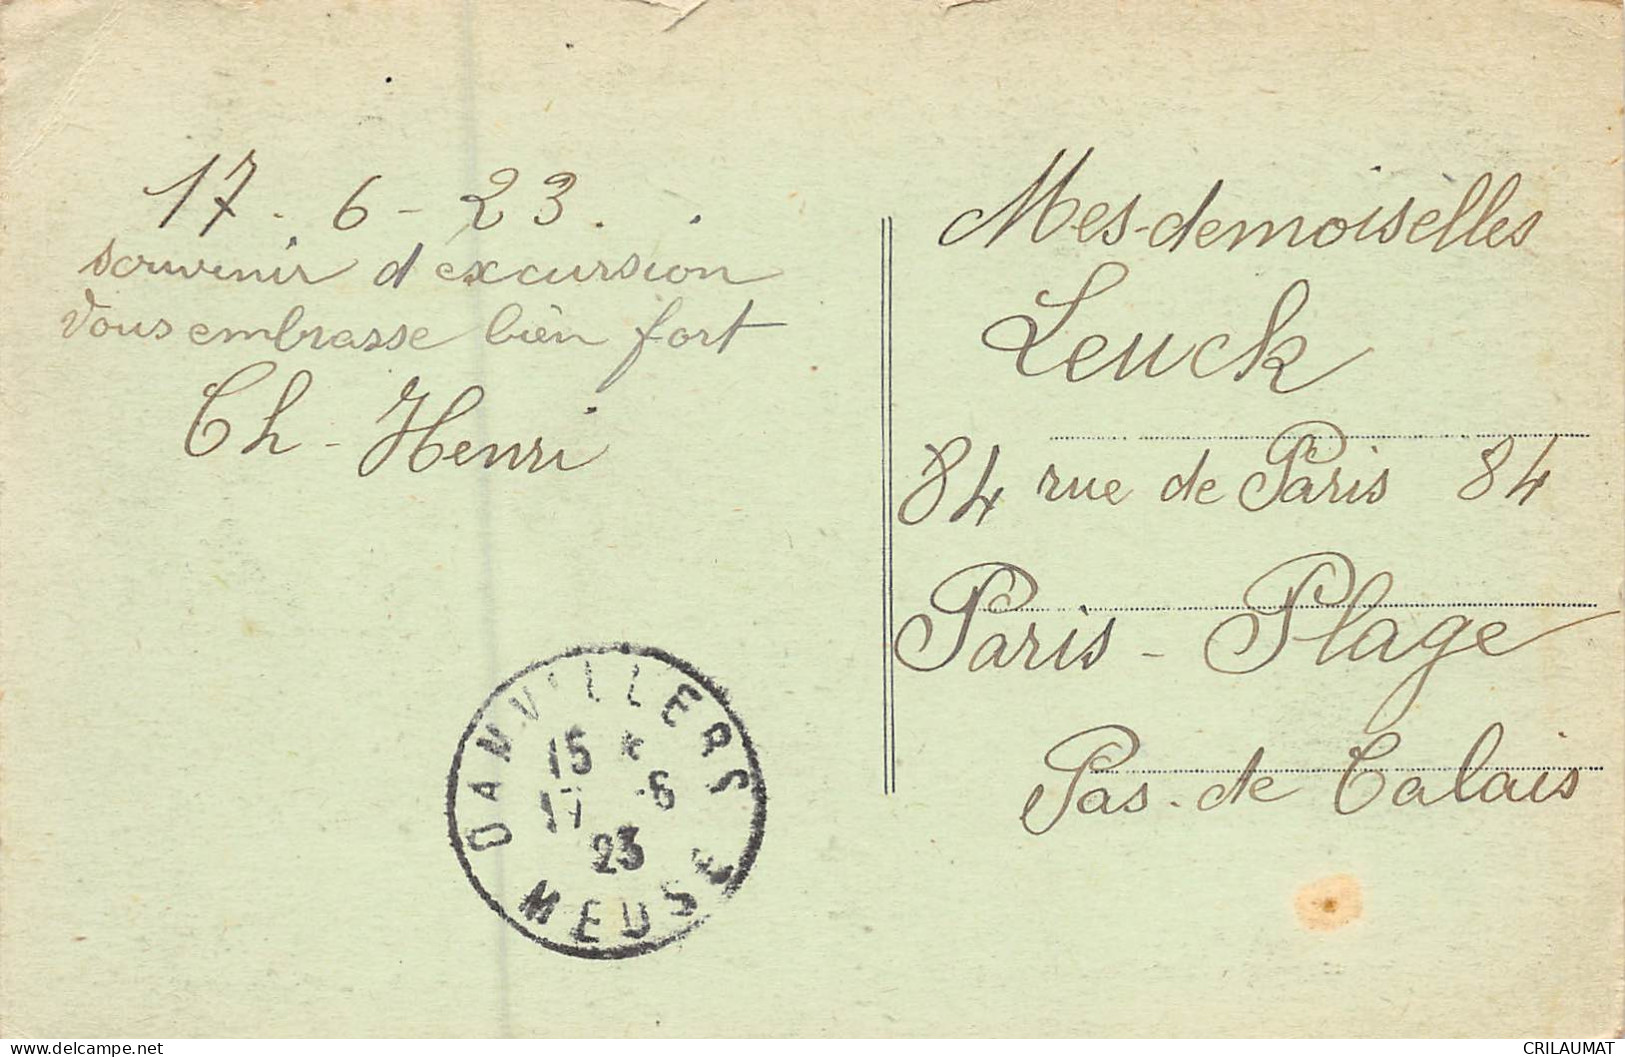 17 - 6 - 23.
souvenir d'excursion
Vous embrasse bien fort
Ch - Henri
Mes-demoiselles
Leuck
84 rue de Paris 84
Paris - Plage
Pas-de Calais
DAMVILLERS
15 *
17 -6
23
MEUSE
delcampe.net
CRILAUMAT